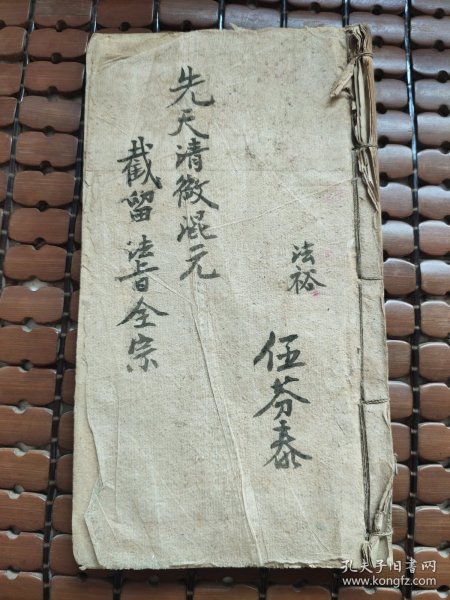 伍芬泰
法裕
先天清微混元
截留法旨全宗
孔夫子旧书网
www.kongfz.com